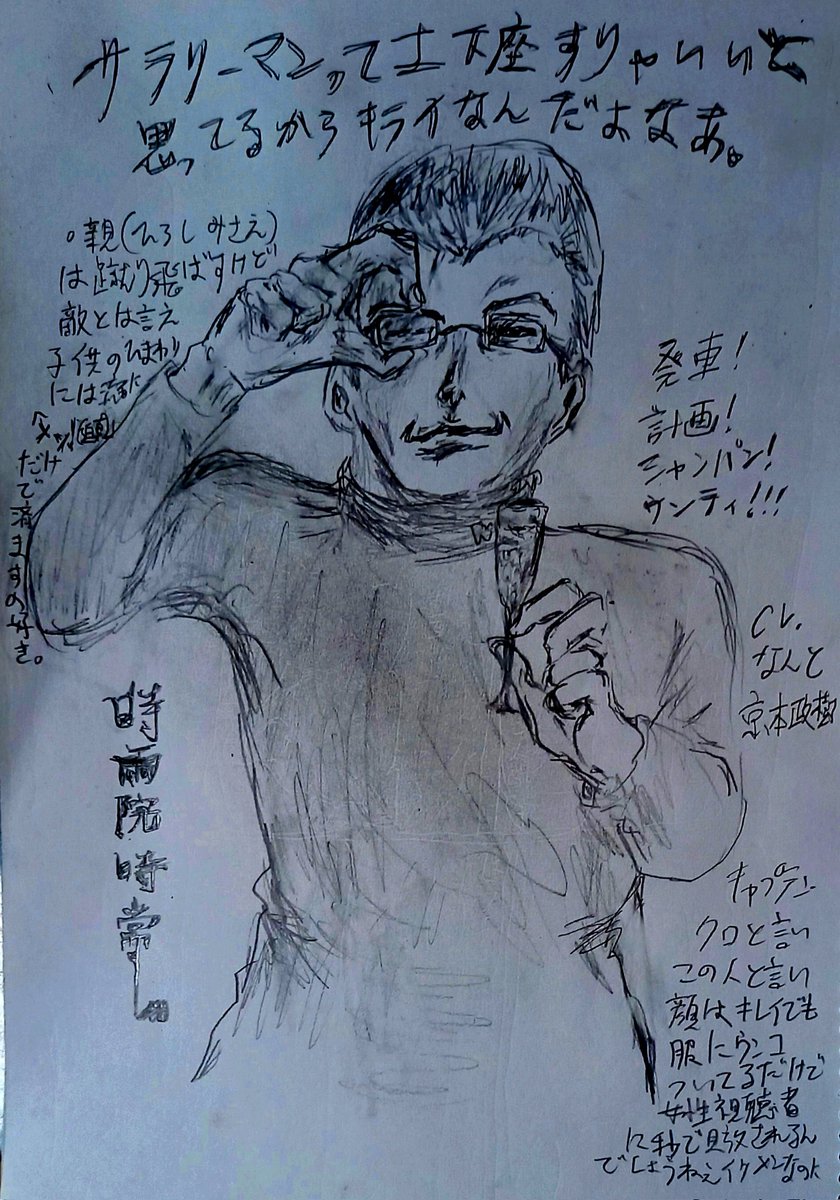 サラリーマンって土下座すりゃいいと
思ってるからキライなんだよなあ。
親(ひろしみさえ)
は蹴り飛ばすけど
敵とは言え
子供のひまわり
には
だけ
で済ますの好き。
発車!
計画!
シャンパン!
ウンティ!!!
CV.
なんと
京本政樹
時雨院時常
キャプテン
クロと言い
この人と言い
顔はキレイでも
服にウンコ
ついてるだけで
女性視聴者
に秒で見放されるん
でしょうねえイケメンなのに